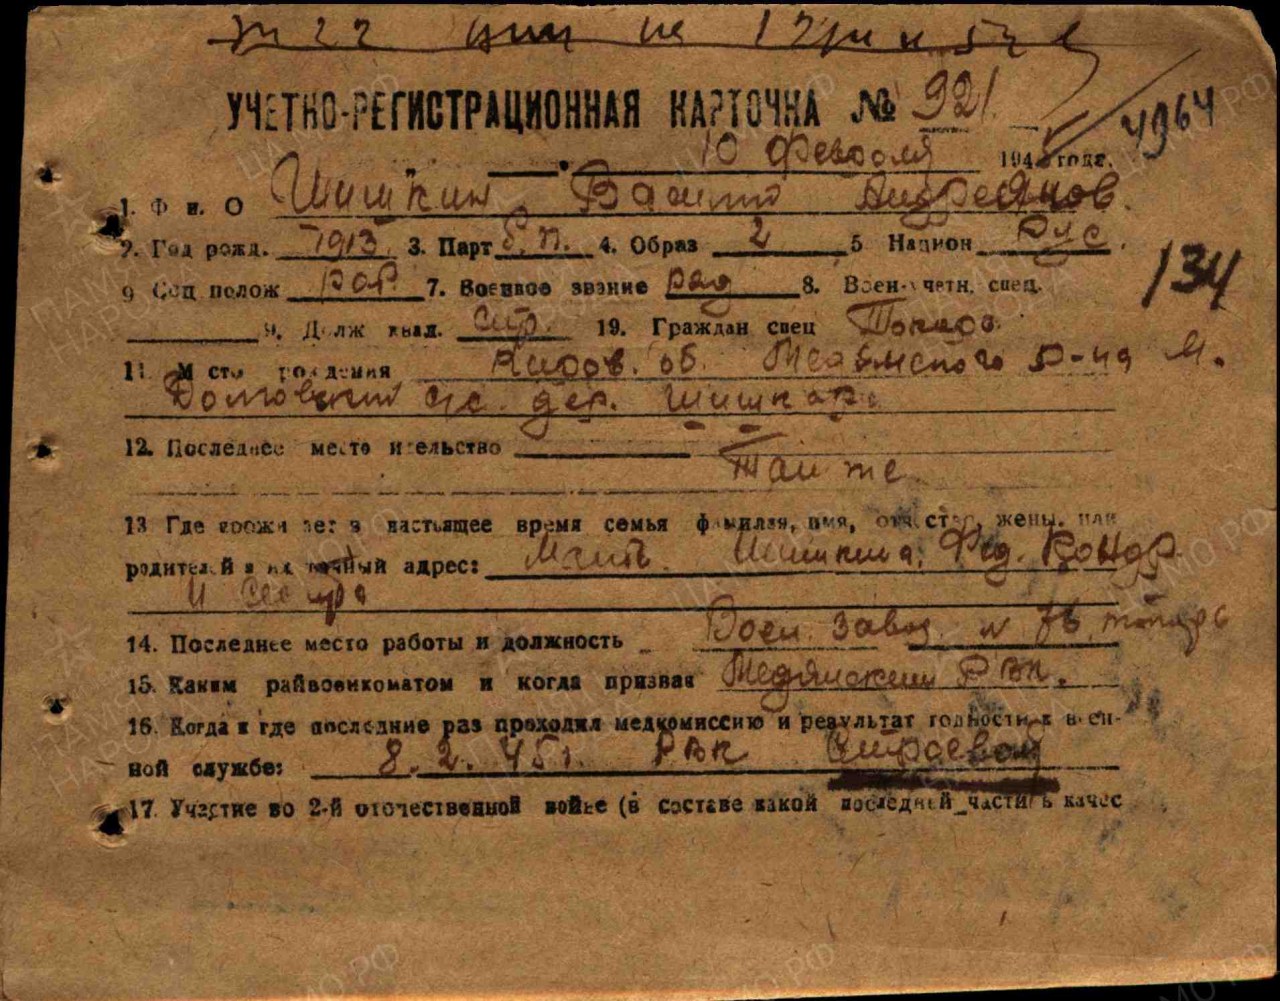 УЧЕТНО-РЕГИСТРАЦИОННАЯ КАРТОЧКА № 921
4964
10 февраля 194 года.
1. Ф и. О Шишкин Андреянов.
2. Год рожд. 1913 3. Парт б.п. 4. Образ 2 5 Национ Рус.
134
9 Соц полож раб 7. Военное звание ряд 8. Воен-учетн. спец.
9. Долж квал. стр. 19. Граждан спец Токарь
11 Место рождения Киров. об. р-на М.
с/с. дер. Шишкари
12. Последнее место ительство
Там же
13 Где прожи ает в настоящее время семья фамилия, имя, отчество, жены. или
родителей и их точный адрес: Мать. Шишкина. Фед. Кондр.
и сестра
14. Последнее место работы и должность Воен. завод. № 76, токарь
15. Каким райвоенкоматом и когда призван РВК.
16. Когда и где последние раз проходил медкомиссию и результат годности к воен-
ной службе: 8. 2. 45 г. РВК Строевой
17. Участие во 2-й отечественной войне (в составе какой последней части в качес